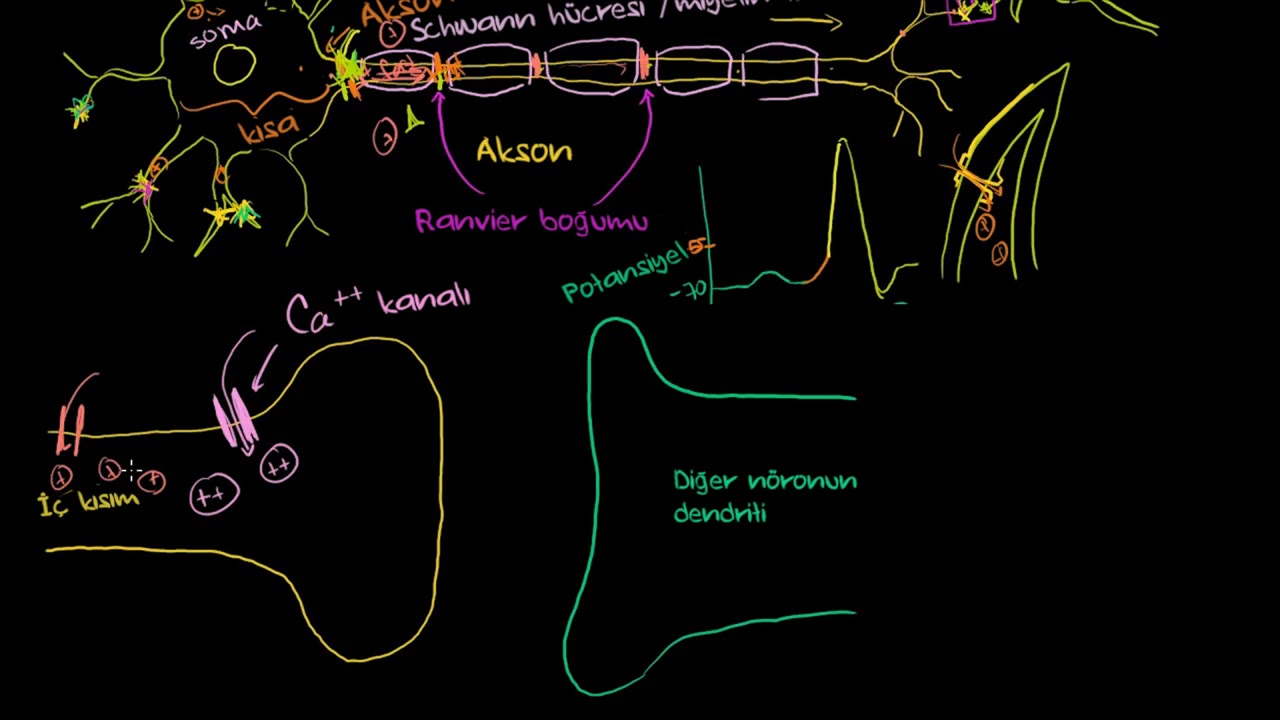 Akson
soma
Schwann hücresi / miyelin
kısa
Akson
Ranvier boğumu
Potansiyel
55
-70
Ca++ kanalı
++
++
İç kısım
Diğer nöronun
dendriti